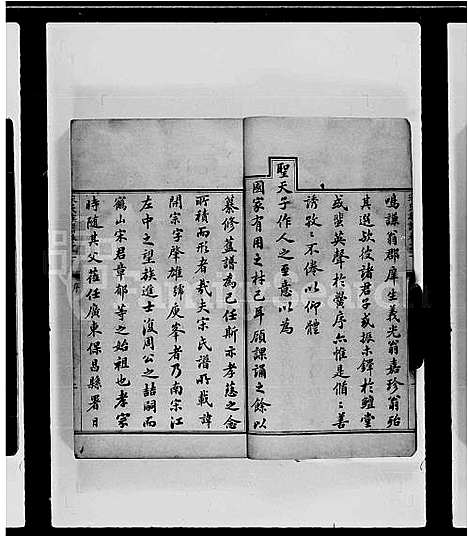 鳴謙翁郡庠生義光翁嘉珍翁殆
其選欤彼諸君子或振木鐸於鱣堂
或蜚英聲於黌序亦惟是循〻善
誘孜〻不倦以仰體
聖天子作人之至意以為
國家有用之材已耳顧課誦之餘以
纂修旧譜為己任斯亦孝慈之念
所積而形者哉夫宋氏譜所載諱
開宗字肇雄號庾峯者乃南宋江
左中之望族進士復周公之喆嗣而
鶴山宋君章郁等之始祖也孝宗
時隨其父蒞任廣東保昌縣署日